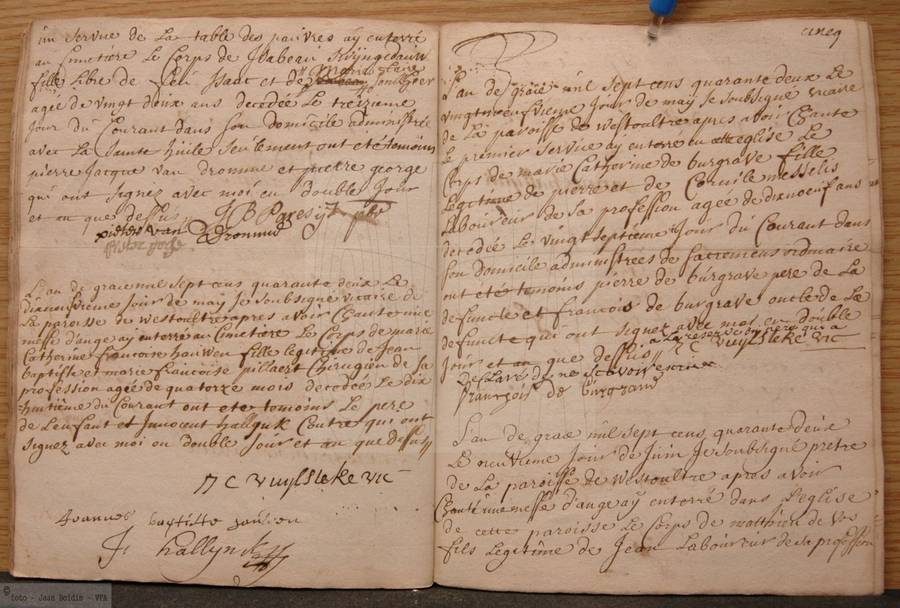 un servue de La table des pauvres ay enterré
au Cimetiere Le Corps de Isabeau
fille Libre de Isaac et de
agée de vingt deux ans decedée Le treizieme
jour du Courant dans son domicile administrée
avec La sainte huile seulement ont ete temoins
pierre jacque van dromme et pietre george
qui ont signez avec moi en double Jour
et an que dessus
pieter van Dromme
L'an de grace mil sept cens quarante deux Le
dixneufvieme jour de may Je soubsigné vicaire de
La paroisse de westoultre apres avoir Chanté une
messe d'ange ay enterré au Cimetiere Le Corps de marie
Catherine francoise hauwen fille legitime de Jean
baptiste et marie francoise pillaert Chirugien de sa
profession agée de quatorze mois decedée Le dix
huitieme du Courant ont ete temoins Le pere
de L'enfant et Innocent hallynk Coutre qui ont
signez avec moi en double Jour et an que dessus
vuylsteke vic
Joannes baptiste
J hallynck
cincq
L'an de grace mil sept cens quarante deux Le
vingtneufvieme jour de may Je soubsigné vicaire
de La paroisse de westoultre apres avoir Chanté
Le premier servue ay enterré en cette eglise Le
Corps de marie Catherine de burgrave fille
Legitime de pierre et de Cornile messelis
Laboureur de sa profession agée de dixneuf ans
decedée Le vingtseptieme Jour du Courant dans
son domicile administrées de sacremens ordinaire
ont été temoins pierre de burgrave pere de La
defuncte et francois de burgrave oncle de La
defuncte qui ont signez avec moi en double
Jour et an que dessus a La reserve du pere qui a
Declaré de ne scavoir ecrire vuylsteke vic
françois de burgrave
L'an de grace mil sept cens quarante deux
Le neuvieme Jour de Juin Je soubsigné pretre
de La paroisse de westoultre apres avoir
Chanté une messe d'ange ay enterré dans L'eglise
de cette paroisse Le Corps de matthieu de vos
fils Legitime de Jean Laboureur de sa profession
© foto - Jaan Boidin - VFA